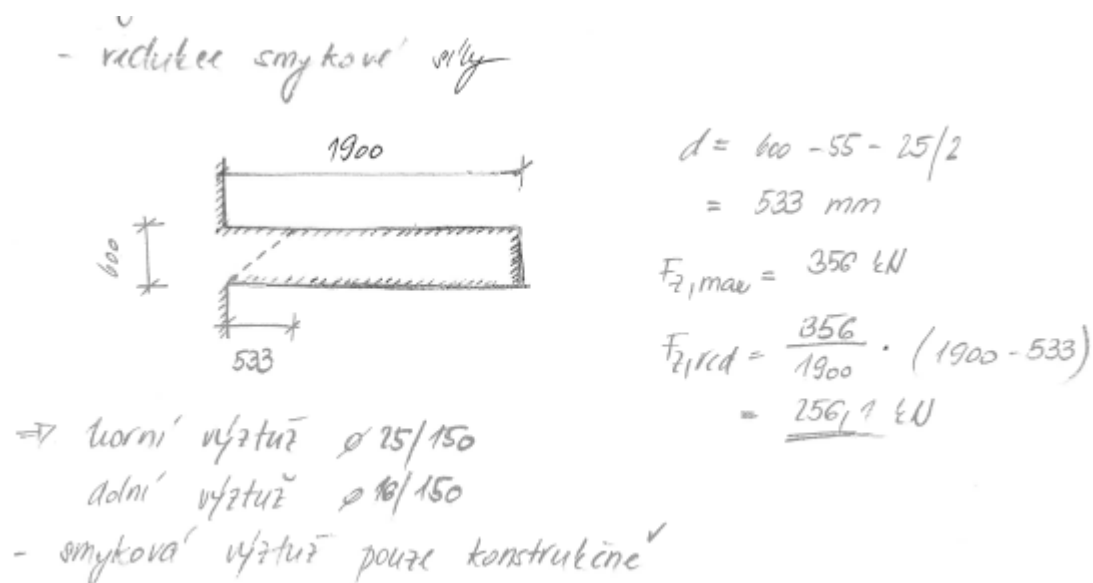 - redukce smykové síly
1900
600
533
d = 600 - 55 - 25/2
= 533 mm
Fz,max = 356 kN
Fz,red = 356/1900 · (1900 - 533)
= 256,1 kN
⇒ horní výztuž ø 25/150
dolní výztuž ø 16/150
- smyková výztuž pouze konstrukčně